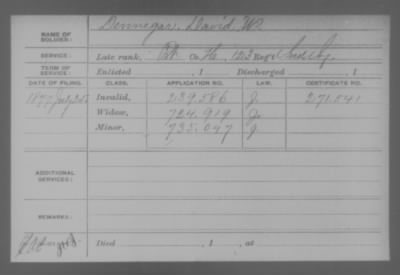 NAME OF SOLDIER: Dennegar, David W.
SERVICE: Late rank, Pvt Co. H, 123 Reg't Ind. Inf.
TERM OF SERVICE: Enlisted , 1 Discharged , 1
DATE OF FILING. CLASS. APPLICATION NO. LAW. CERTIFICATE NO.
1877 July 25 Invalid, 239.586 J. 271.541
Widow, 724.919 J.
Minor, 735.047 J.
ADDITIONAL SERVICES:
REMARKS:
Died , 1 , at